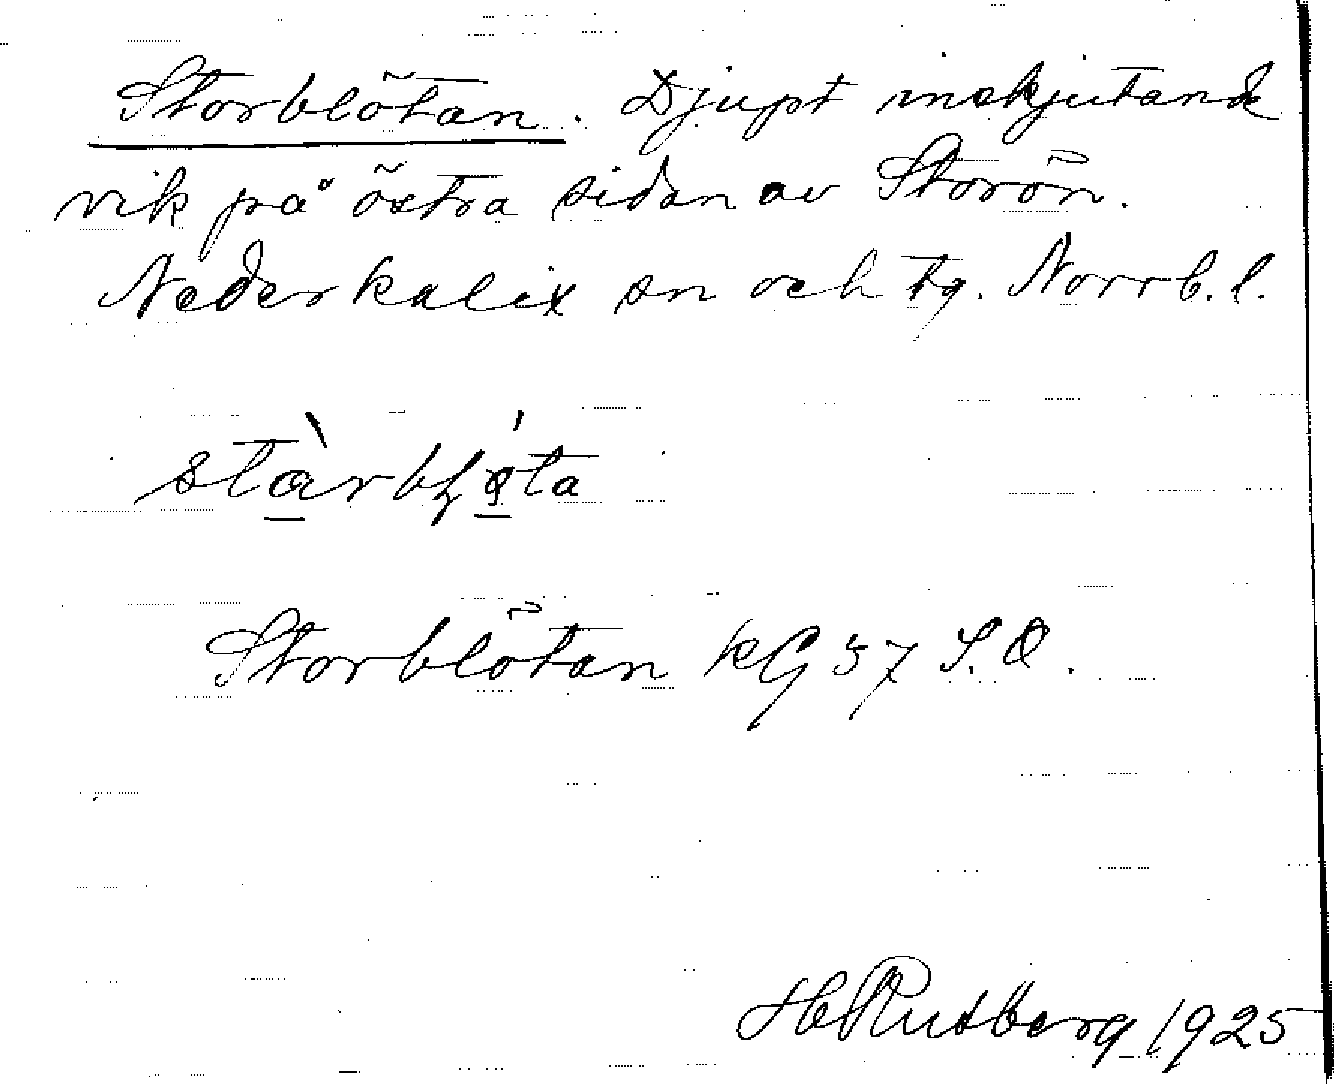 Storblötan. Djupt inskjutande
vik på östra sidan av Storön.
Nederkalix sn och tg. Norrb. l.
stàrbḷǿta
Storblötan KG 37 S.O.
H Rutberg 1925